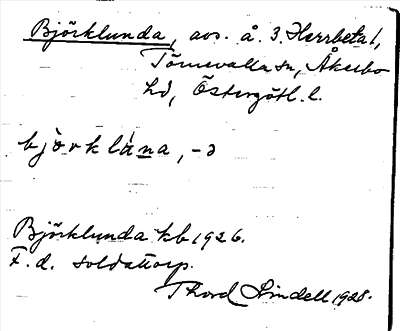 Björklunda, avs. å. 3. Herrbeta 1,
Törnevalla sn, Åkerbo
hd, Östergötl. l.
björklána, -ə
Björklunda kb 1926.
F. d. soldattorp.
Thord Lindell 1928.